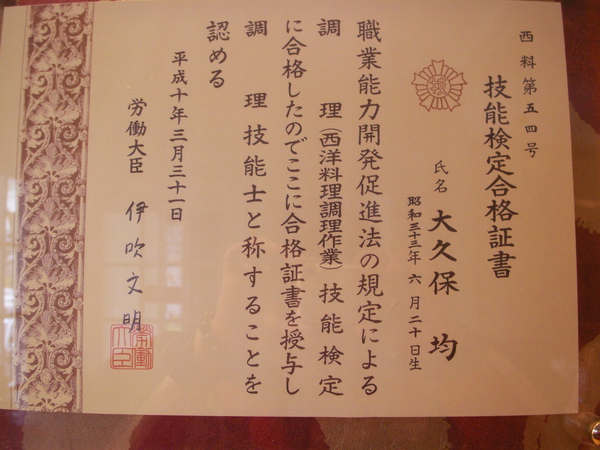 西料第五四号
技能検定合格証書
氏名 大久保 均
昭和三十三年六月二十日生
職業能力開発促進法の規定による
調 理（西洋料理調理作業）技能検定
に合格したのでここに合格証書を授与し
調 理技能士と称することを
認める
平成十年三月三十一日
労働大臣 伊吹文明
労働大臣